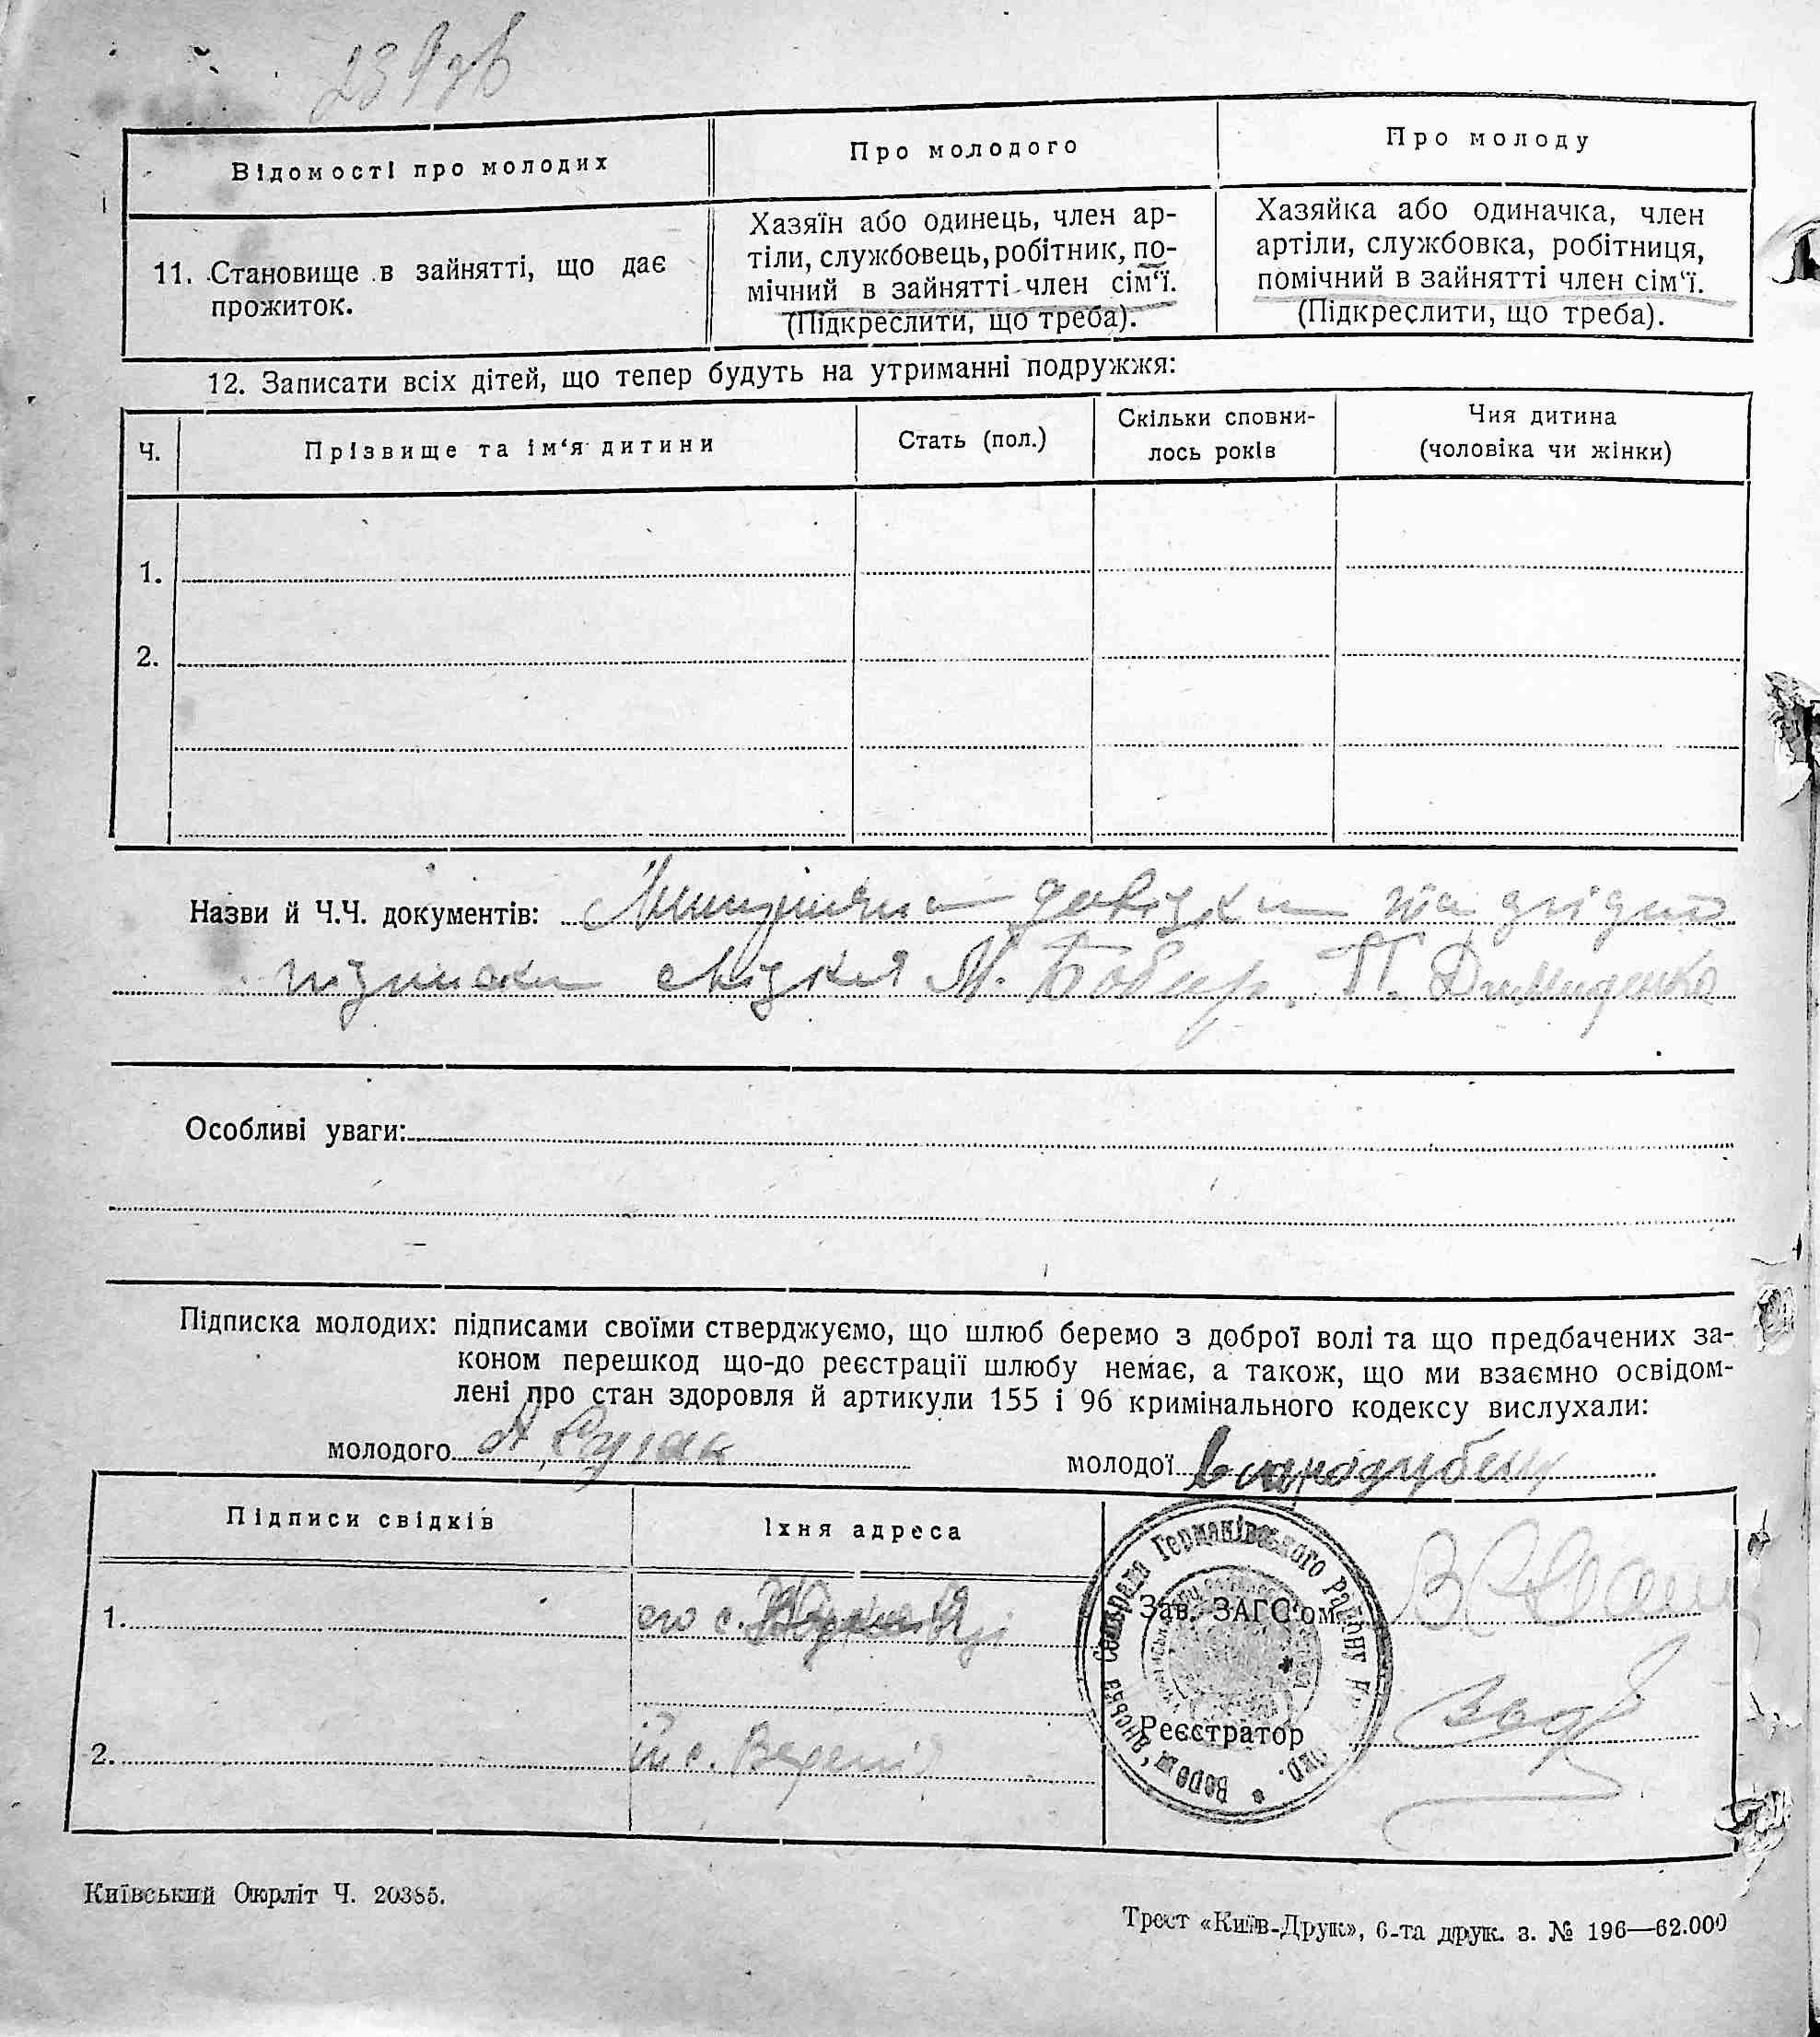 239зв
Відомості про молодих
Про молодого
Про молоду
11. Становище в зайнятті, що дає
прожиток.
Хазяїн або одинець, член ар-
тіли, службовець, робітник, по-
мічний в зайнятті член сім‘ї.
(Підкреслити, що треба).
Хазяйка або одиначка, член
артіли, службовка, робітниця,
помічний в зайнятті член сім‘ї.
(Підкреслити, що треба).
12. Записати всіх дітей, що тепер будуть на утриманні подружжя:
Ч.
Прізвище та ім‘я дитини
Стать (пол.)
Скільки сповни-
лось років
Чия дитина
(чоловіка чи жінки)
1.
2.
Назви й Ч.Ч. документів: довідки та згідно
підписки свідків М. Бобир. П. Димиденко
Особливі уваги:
Підписка молодих: підписами своїми стверджуємо, що шлюб беремо з доброї волі та що предбачених за-
коном перешкод що-до реєстрації шлюбу немає, а також, що ми взаємно освідом-
лені про стан здоровля й артикули 155 і 96 кримінального кодексу вислухали:
молодого
молодої
Підписи свідків
Їхня адреса
Германівського Району
1.
с.
Зав. ЗАГС‘ом
Реєстратор
2.
с.
Київський Окрліт Ч. 20385.
Трест «Київ-Друк», 6-та друк. з. № 196—62.000